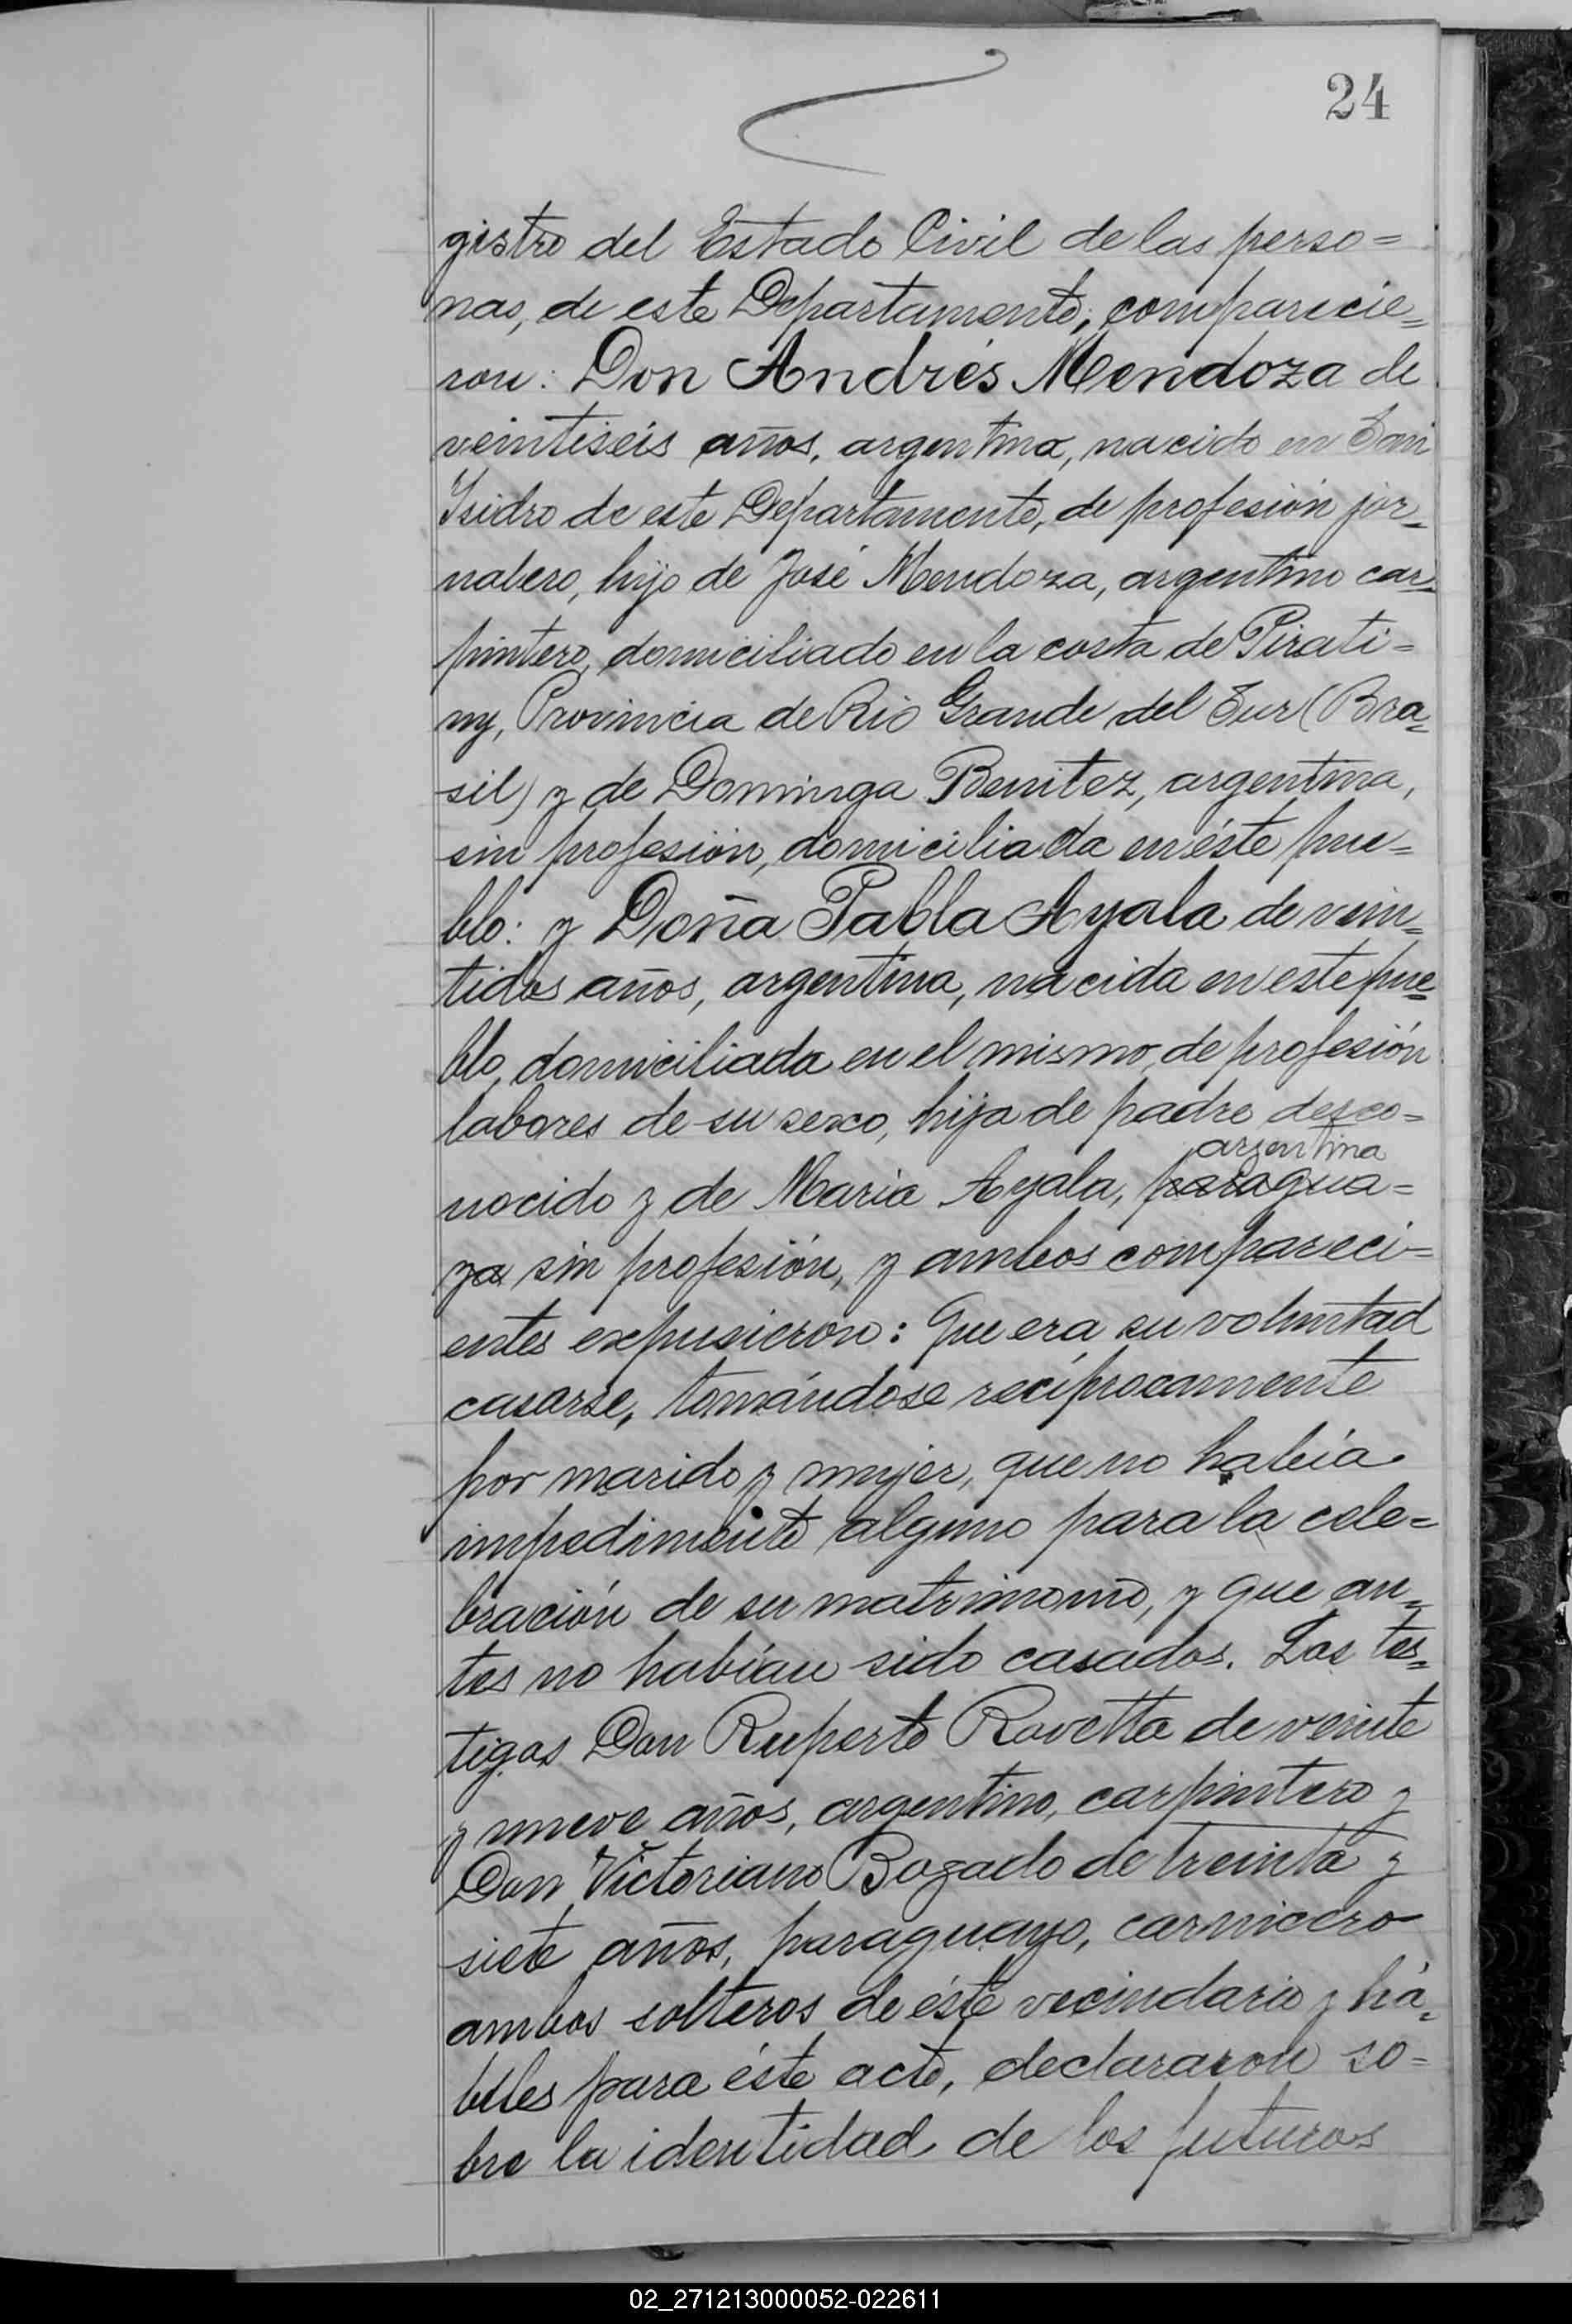 24
gistro del Estado Civil de las perso=
nas, de este Departamento; comparecie=
ron: Don Andrés Mendoza de
veintiseis años, argentino, nacido en San
Isidro de este Departamento, de profesión jor=
nalero, hijo de José Mendoza, argentino car=
pintero, domiciliado en la costa de Pirati=
ny, Provincia de Rio Grande del Sur (Bra=
sil) y de Dominga Benitez, argentina,
sin profesión, domiciliada en éste pue=
blo: y Doña Pabla Ayala de vein=
tidos años, argentina, nacida en este pue=
blo, domiciliada en el mismo, de profesión
labores de su sexo, hija de padre desco=
argentina
nocido y de Maria Ayala, paragua=
ya sin profesión, y ambos compareci=
entes expusieron: Que era su voluntad
casarse, tomándose recíprocamente
por marido y mujer, que no había
impedimento alguno para la cele=
bración de su matrimonio, y que an=
tes no habían sido casados. Los tes=
tigos Don Ruperto Rovetta de veinte
y nueve años, argentino, carpintero y
Don Victoriano Bozado de treinta y
siete años, paraguayo, carnicero
ambos solteros de éste vecindario y há=
biles para éste acto, declararon so=
bre la identidad de los futuros
02_271213000052-022611